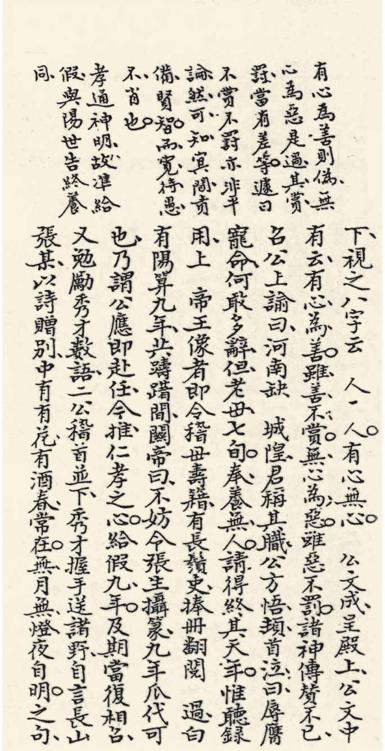 有心為善則偽無
心為惡是過其賞
罰當有差等遽曰
不賞不罰亦非平
論然可知冥間責
備賢智而寬待愚
不肖也
孝通神明故準給
假與陽世告終養
同
下視之八字云 人一人有心無心 公文成呈殿上公文中
有云有心為善雖善不賞無心為惡雖惡不罰諸神傳贊不已
召公上諭曰河南缺 城隍君稱其職公方悟頓首泣曰辱膺
寵命何敢多辭但老母七旬奉養無人請得終其天年惟聽錄
用上 帝王像者即令稽母壽籍有長鬚吏捧冊翻閱 過白
有陽算九年共躊躇間關帝曰不妨令張生攝篆九年瓜代可
也乃謂公應即赴任今推仁孝之心給假九年及期當復相召
又勉勵秀才數語二公稽首並下秀才握手送諸野自言長山
張某以詩贈別中有有花有酒春常在無月無燈夜自明之句